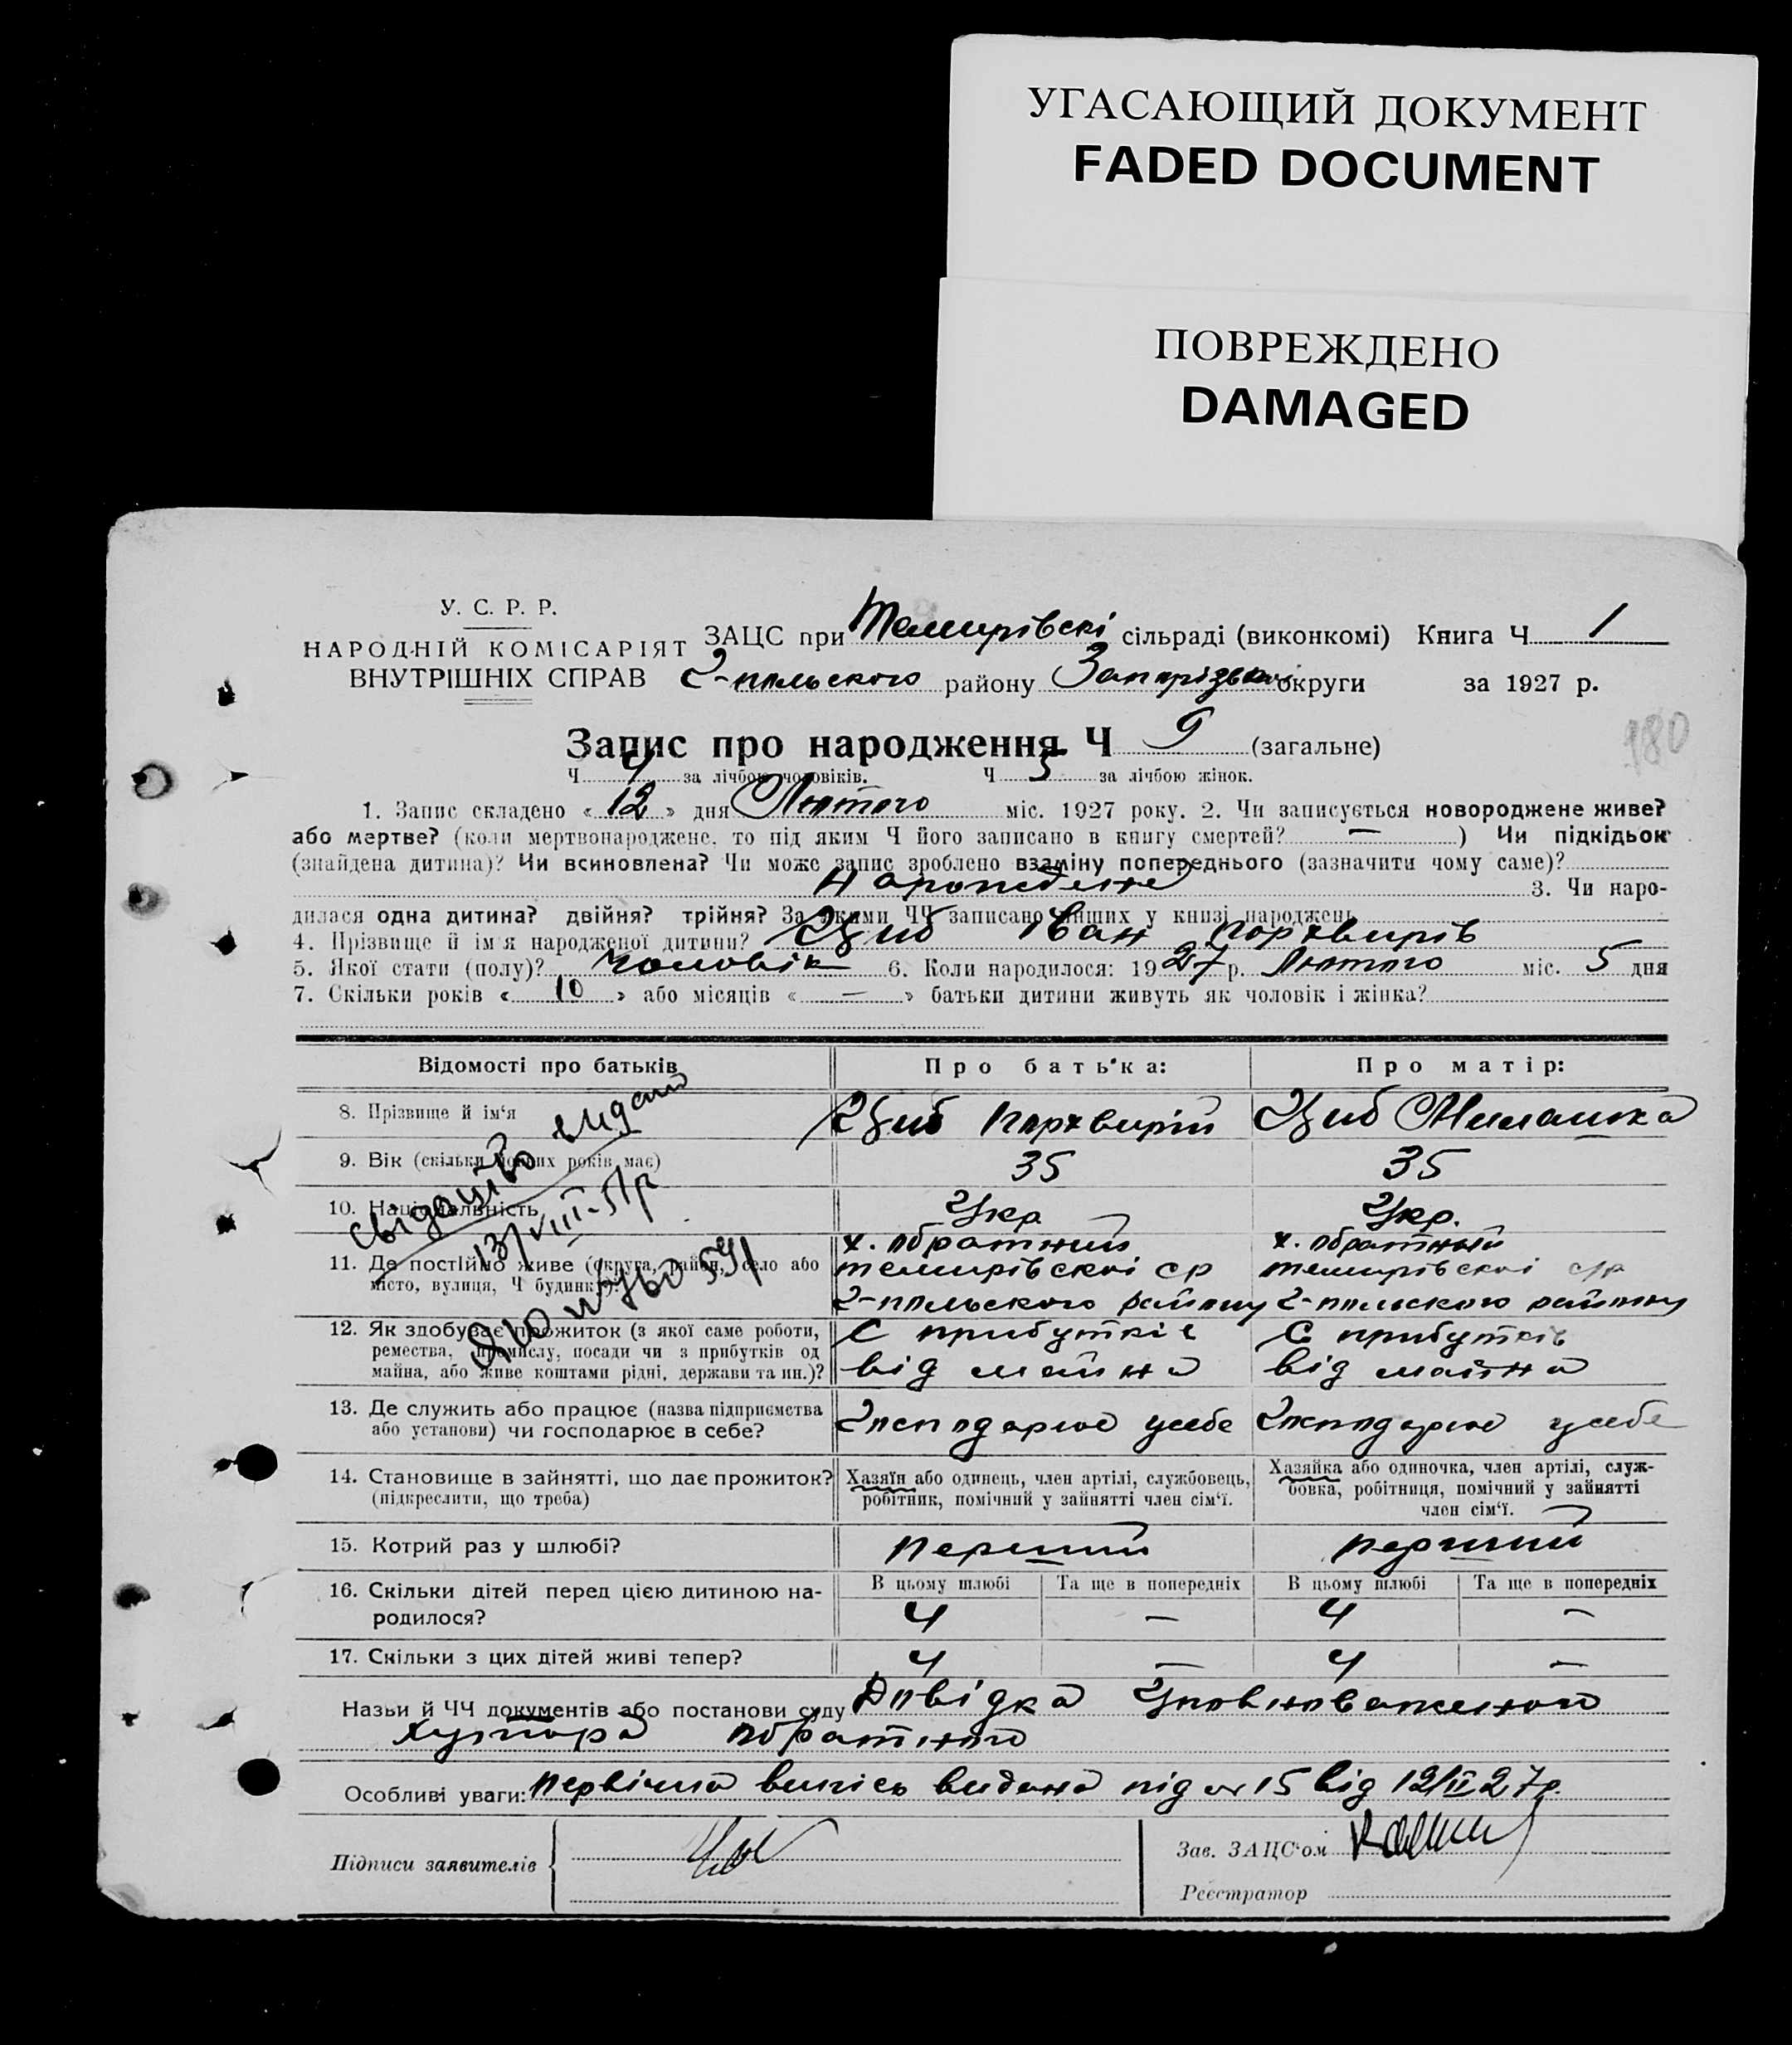 УГАСАЮЩИЙ ДОКУМЕНТ
FADED DOCUMENT
ПОВРЕЖДЕНО
DAMAGED
У. С. Р. Р.
НАРОДНІЙ КОМІСАРІЯТ
ВНУТРІШНІХ СПРАВ
ЗАЦС при Темирівскі сільраді (виконкомі) Книга Ч 1
Г-польского району Запорізької округи за 1927 р.
180
Запис про народження Ч 9 (загальне)
Ч 4 за лічбою чоловіків. Ч 5 за лічбою жінок.
1. Запис складено « 12 » дня Лютого міс. 1927 року. 2. Чи записується новороджене живе?
або мертве? (коли мертвонароджене, то під яким Ч його записано в книгу смертей? — ) Чи підкідьок
(знайдена дитина)? Чи всиновлена? Чи може запис зроблено взаміну попереднього (зазначити чому саме)?
народжене 3. Чи наро-
дилася одна дитина? двійня? трійня? За якими ЧЧ записано інших у книзі народжень
4. Прізвище й ім'я народженої дитини? Циб Іван Порхвирів
5. Якої стати (полу)? Чоловік 6. Коли народилося: 1927 р. Лютого міс. 5 дня
7. Скільки років « 10 » або місяців « — » батьки дитини живуть як чоловік і жінка?
Відомості про батьків Про батька: Про матір:
8. Прізвище й ім'я Циб Порхвирій Циб Милашка
9. Вік (скільки повних років має) 35 35
10. Національність Укр Укр.
11. Де постійно живе (округа, район, село або місто, вулиця, Ч будинку).
х. обратний
темирівскоі ср
Г-польского району
х. обратный
темирівскоі с/р
Г-польского району
12. Як здобуває прожиток (з якої саме роботи,
ремества, промислу, посади чи з прибутків од
майна, або живе коштами рідні, держави та ин.)?
С прибутків
від майна
С прибутків
від майна
13. Де служить або працює (назва підприємства
або установи) чи господарює в себе?
Господарює усебе Господарює усебе
14. Становище в зайнятті, що дає прожиток?
(підкреслити, що треба)
Хазяїн або одинець, член артілі, службовець,
робітник, помічний у зайнятті член сім'ї.
Хазяйка або одиночка, член артілі, служ-
бовка, робітниця, помічний у зайнятті
член сім'ї.
15. Котрий раз у шлюбі? перший перший
16. Скільки дітей перед цією дитиною на-
родилося?
В цьому шлюбі Та ще в попередніх В цьому шлюбі Та ще в попередніх
4 — 4 —
17. Скільки з цих дітей живі тепер? 4 — 4 —
Свідоцтво видано
13/VIII-51р
Назви й ЧЧ документів або постанови суду Довідка Уповноваженого
хутора обратного
Особливі уваги: первічна випісь видана під № 15 від 12/II 27р.
Підписи заявителів Циб
Зав. ЗАЦС'ом
Реєстратор